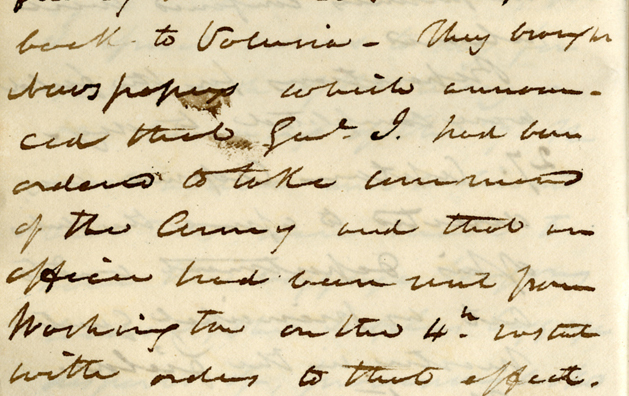 back to Volusia - They brought
Newspapers which announ-
ced that Genl. J. had been
ordered to take command
of the Army and that an
officer had been sent from
Washington on the 4th instant
with orders to that effect.